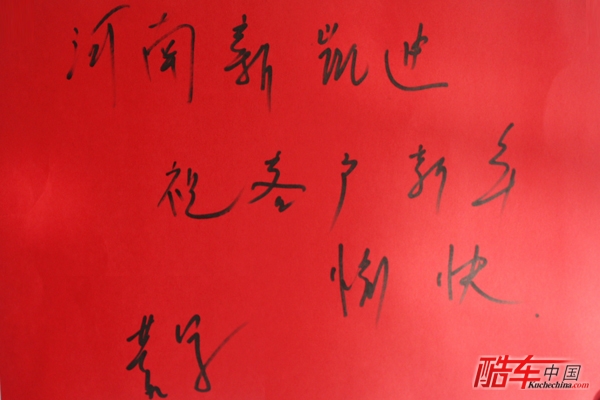 河南新凯迪
祝客户新年
愉快.
酷车中国
Kuchechina.com